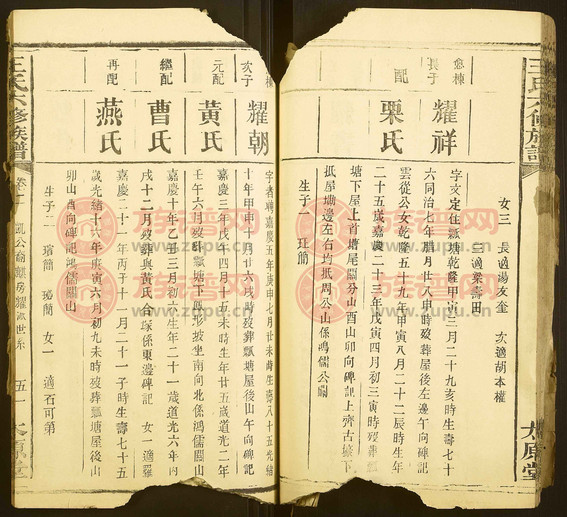 王氏六修族譜
太原堂
女三 長適湯友奎 次適胡本權
三適梁壽田
愈棟
長子 耀祥
字文定住瓢塘乾隆甲寅三月二十九亥時生壽七十
六同治七年臘月廿八申時歿葬屋後左邊午向碑記
配 栗氏
雲從公女乾隆五十九年甲寅八月二十二辰時生年
二十五歲嘉慶二十三年戊寅四月初三寅時歿葬瓢
塘下屋上首塘尾關分山酉山卯向碑記上齊古壕下
抵屋塝邊左右均抵周公山係鴻儒公關
生子一 玨簡
棟
次子 耀朝
字耆聘嘉慶五年庚申七月廿未時生壽八十五光緒
十年甲申十月十六戌時歿葬瓢塘屋後山午向碑記
元配 黃氏
嘉慶三年戊午四月十五未時生年廿五歲道光二年
壬午六月歿葬瓢塘下形坡坐南向北係鴻儒關山
繼配 曹氏
嘉慶十年乙丑三月初六生年二十一歲道光六年丙
戌十二月歿葬與黃氏合塚係東邊碑記 女一 適羅
再配 燕氏
嘉慶二十一年丙子十一月二十一子時生壽七十五
歲光緒十六年庚寅六月初九未時歿葬瓢塘屋後山
卯山酉向碑記鴻儒關山
生子二 瑨簡 珌簡 女一 適石可第
王氏六修族譜
卷 凱公裔麒房耀派世系 五一 太原堂
族譜网
www.zupu.cn
族譜网
www.zupu.cn